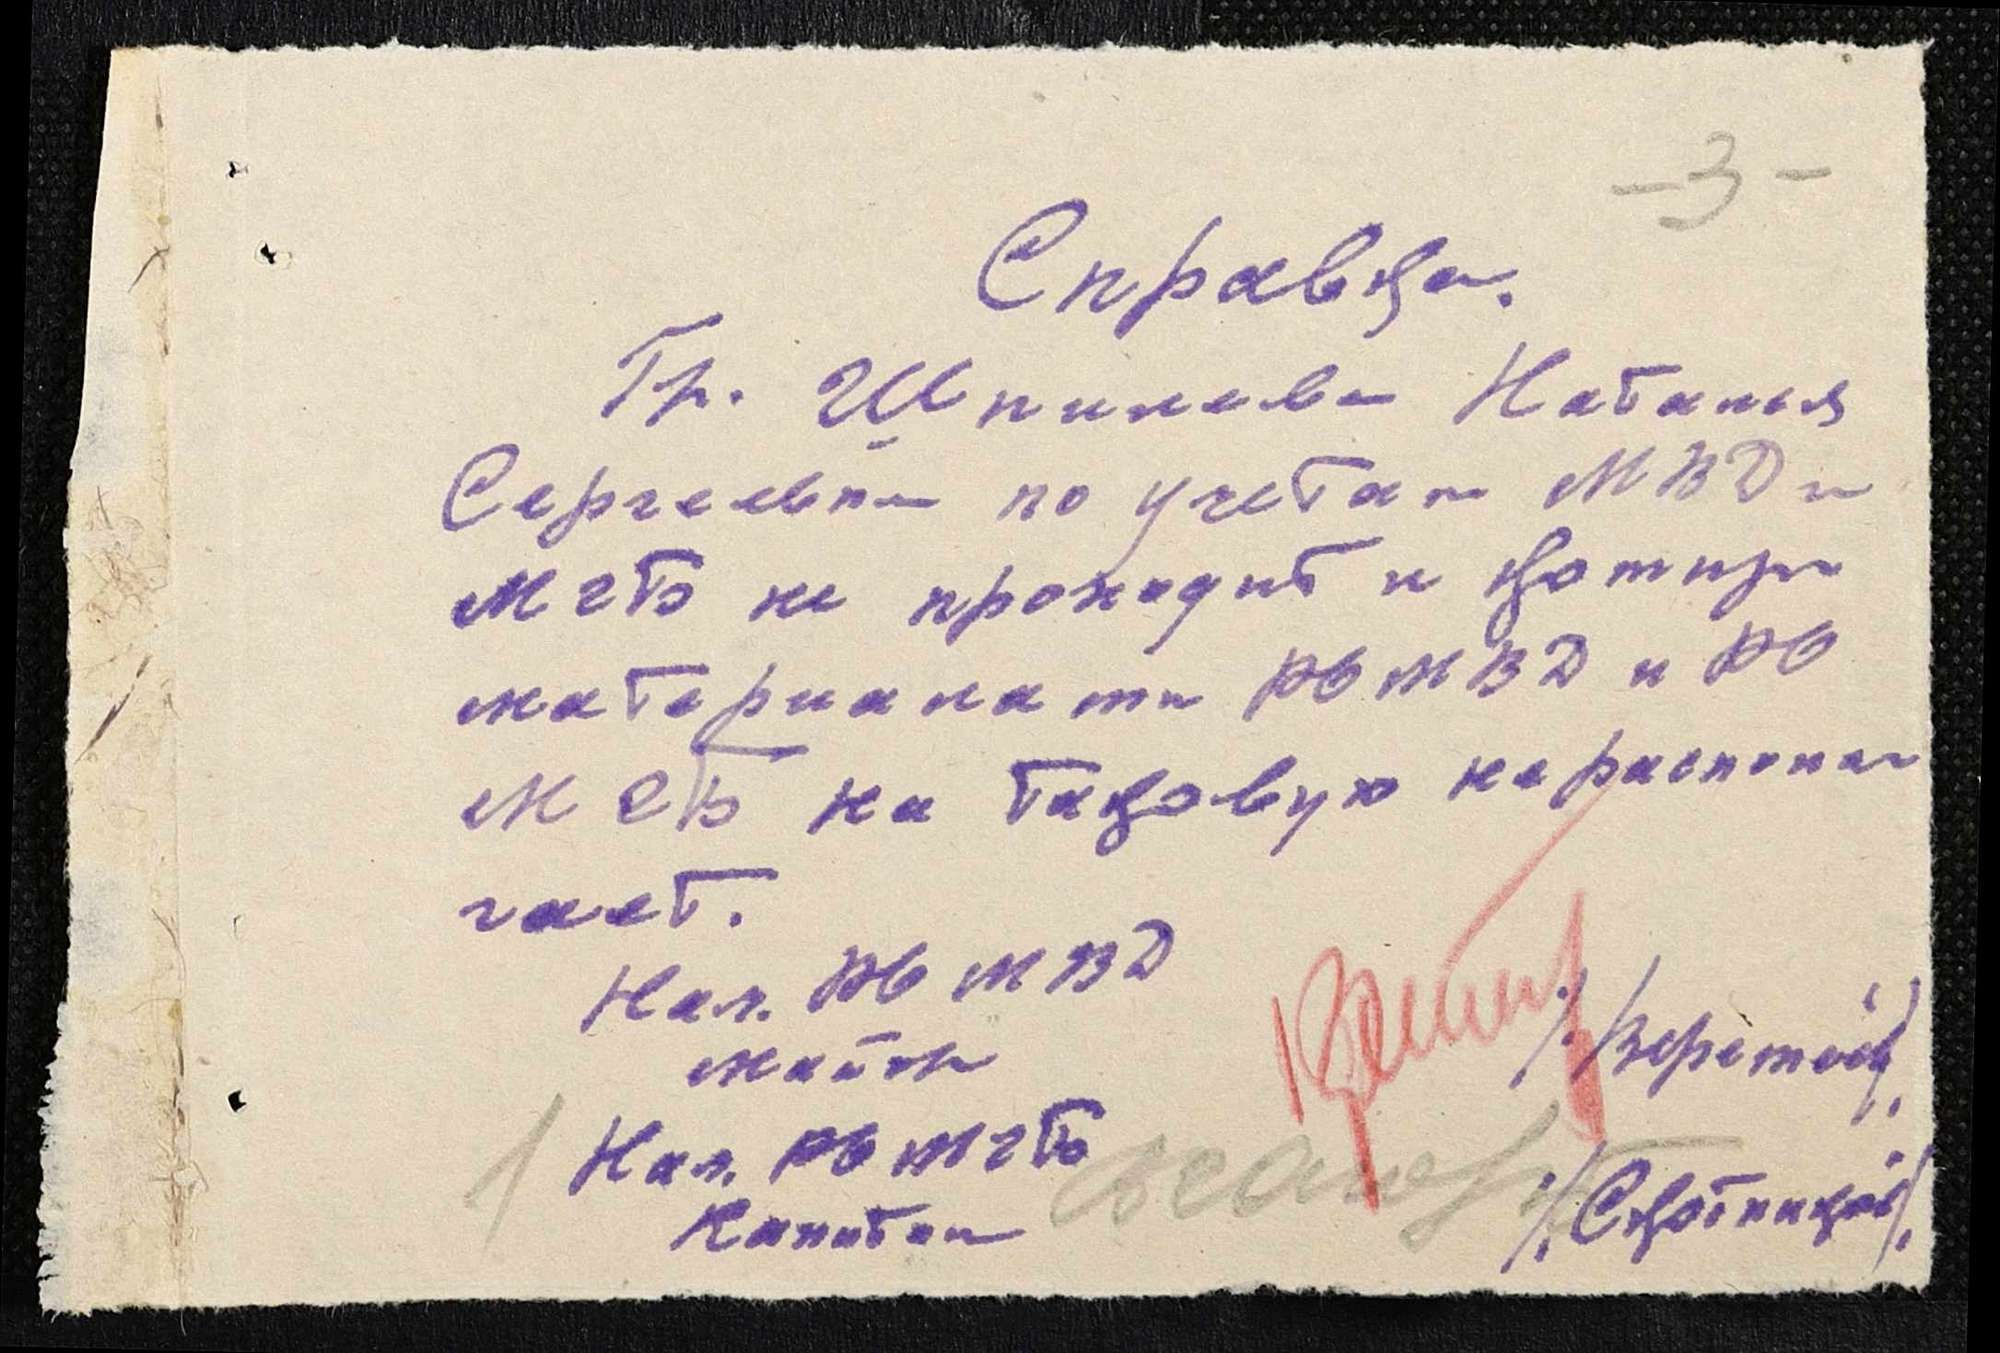 -3-
Справка.
Гр. Шпилева Наталья
Сергеевна по учетам МВД и
МГБ не проходит и компр
материалами РО МВД и РО
МГБ на таковую не распола
гает.
Нач. РО МВД
майор /Веретён/
Нач. РО МГБ
Капитан /Скотников/